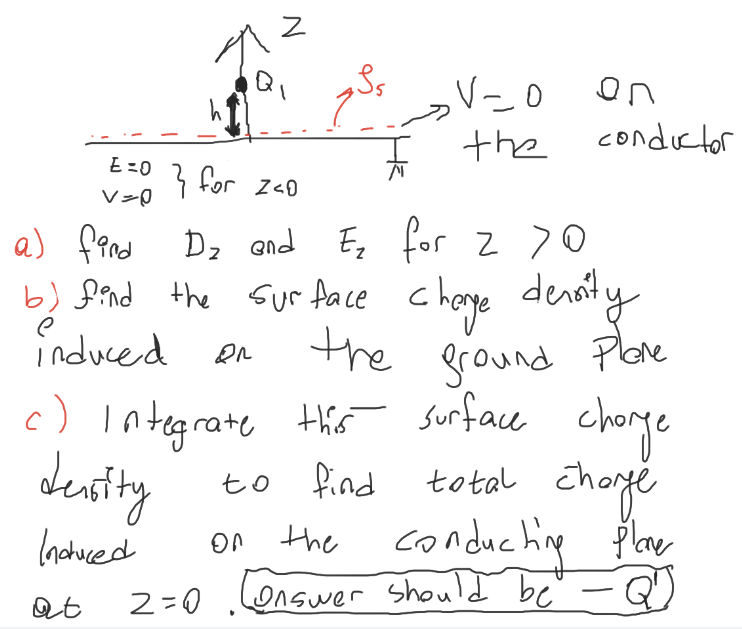 Z
Q1
h
ρs
V=0 on
the conductor
E=0
V=0 } for z<0
a) find Dz and Ez for z >0
b) find the surface charge density
induced on the ground Plane
c) Integrate this surface charge
density to find total charge
Induced on the conducting plane
at z=0. (answer should be -Q)